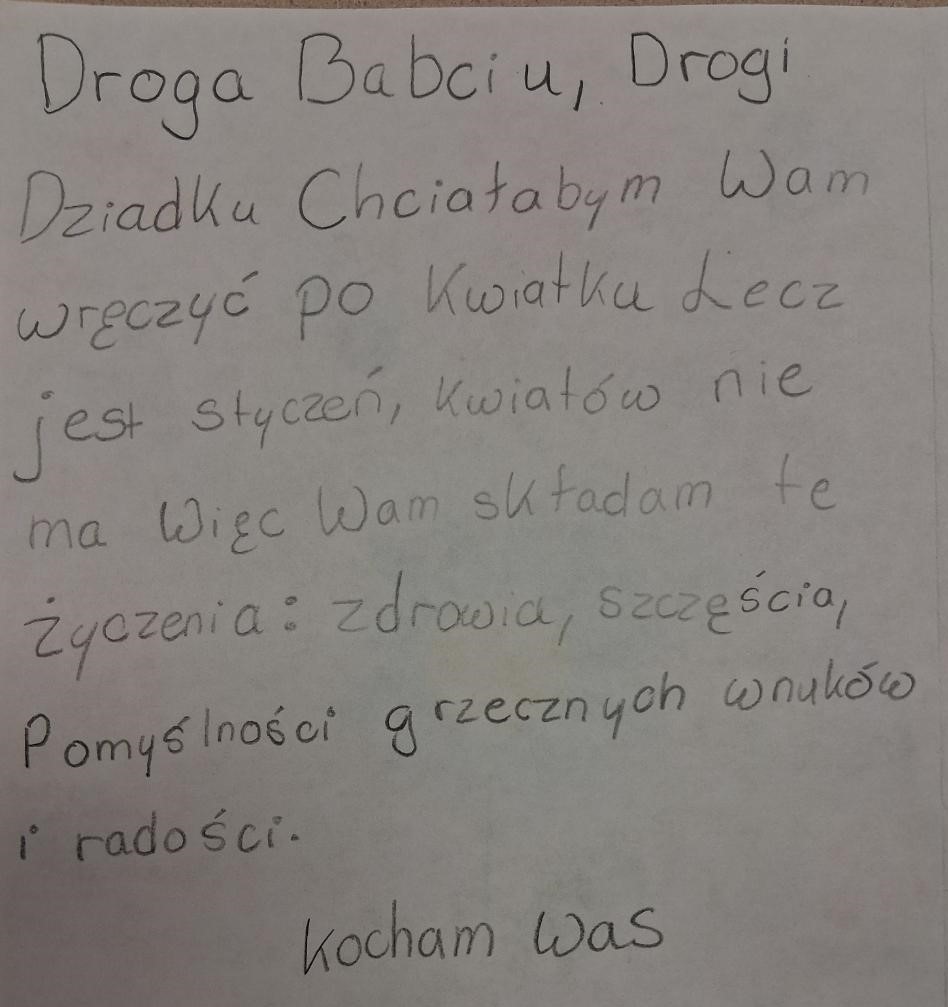 Droga Babciu, Drogi
Dziadku Chciałabym Wam
wręczyć po Kwiatku Lecz
jest styczeń, kwiatów nie
ma Więc Wam składam te
życzenia: zdrowia, szczęścia,
Pomyślności grzecznych wnuków
i radości.
Kocham Was